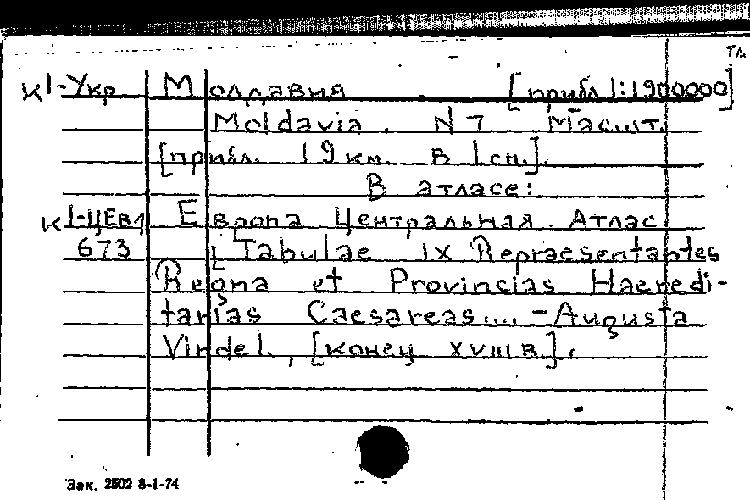 Тл.
К1-Укр Молдавия [прибл 1:1900000]
Moldavia. N 7 Масшт.
[прибл. 19 км. в 1 см].
В атласе:
К1-ЦЕв1 Европа Центральная. Атлас
673 [Tabulae IX Repraesentantes
Regna et Provincias Haeredi-
tarias Caesareas.... - Augusta
Vindel., [конец XVIII в.].
Зак. 2502 8-1-74